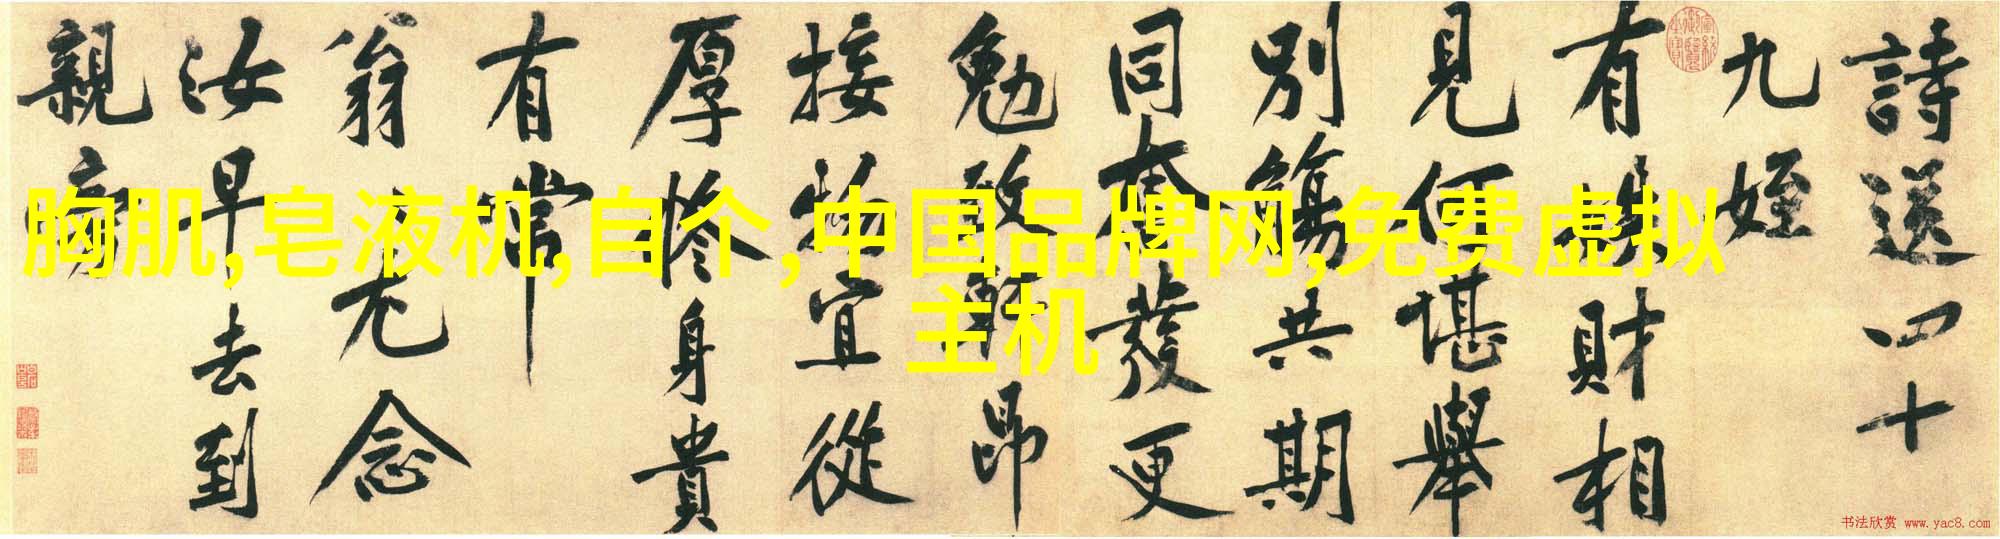 詩送四十
九姪
有財相
見何堪舉
別觴共期
同奮發更
勉致軒昂
接物宜從
厚修身貴
有常
翁尤念
汝早去到
親旁
胸肌,皂液机,自个,中国品牌网,免费虚拟
主机
书法欣赏 www.yac8.com